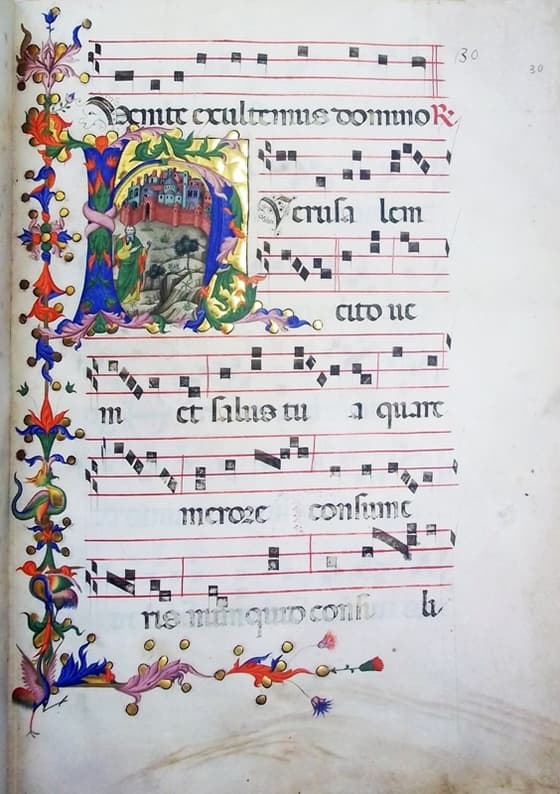 30
30
Venite exultemus domino R
H
yerusa lem
cito ve
ni et salus tu a quare
merore consume
ris nunquid consi li